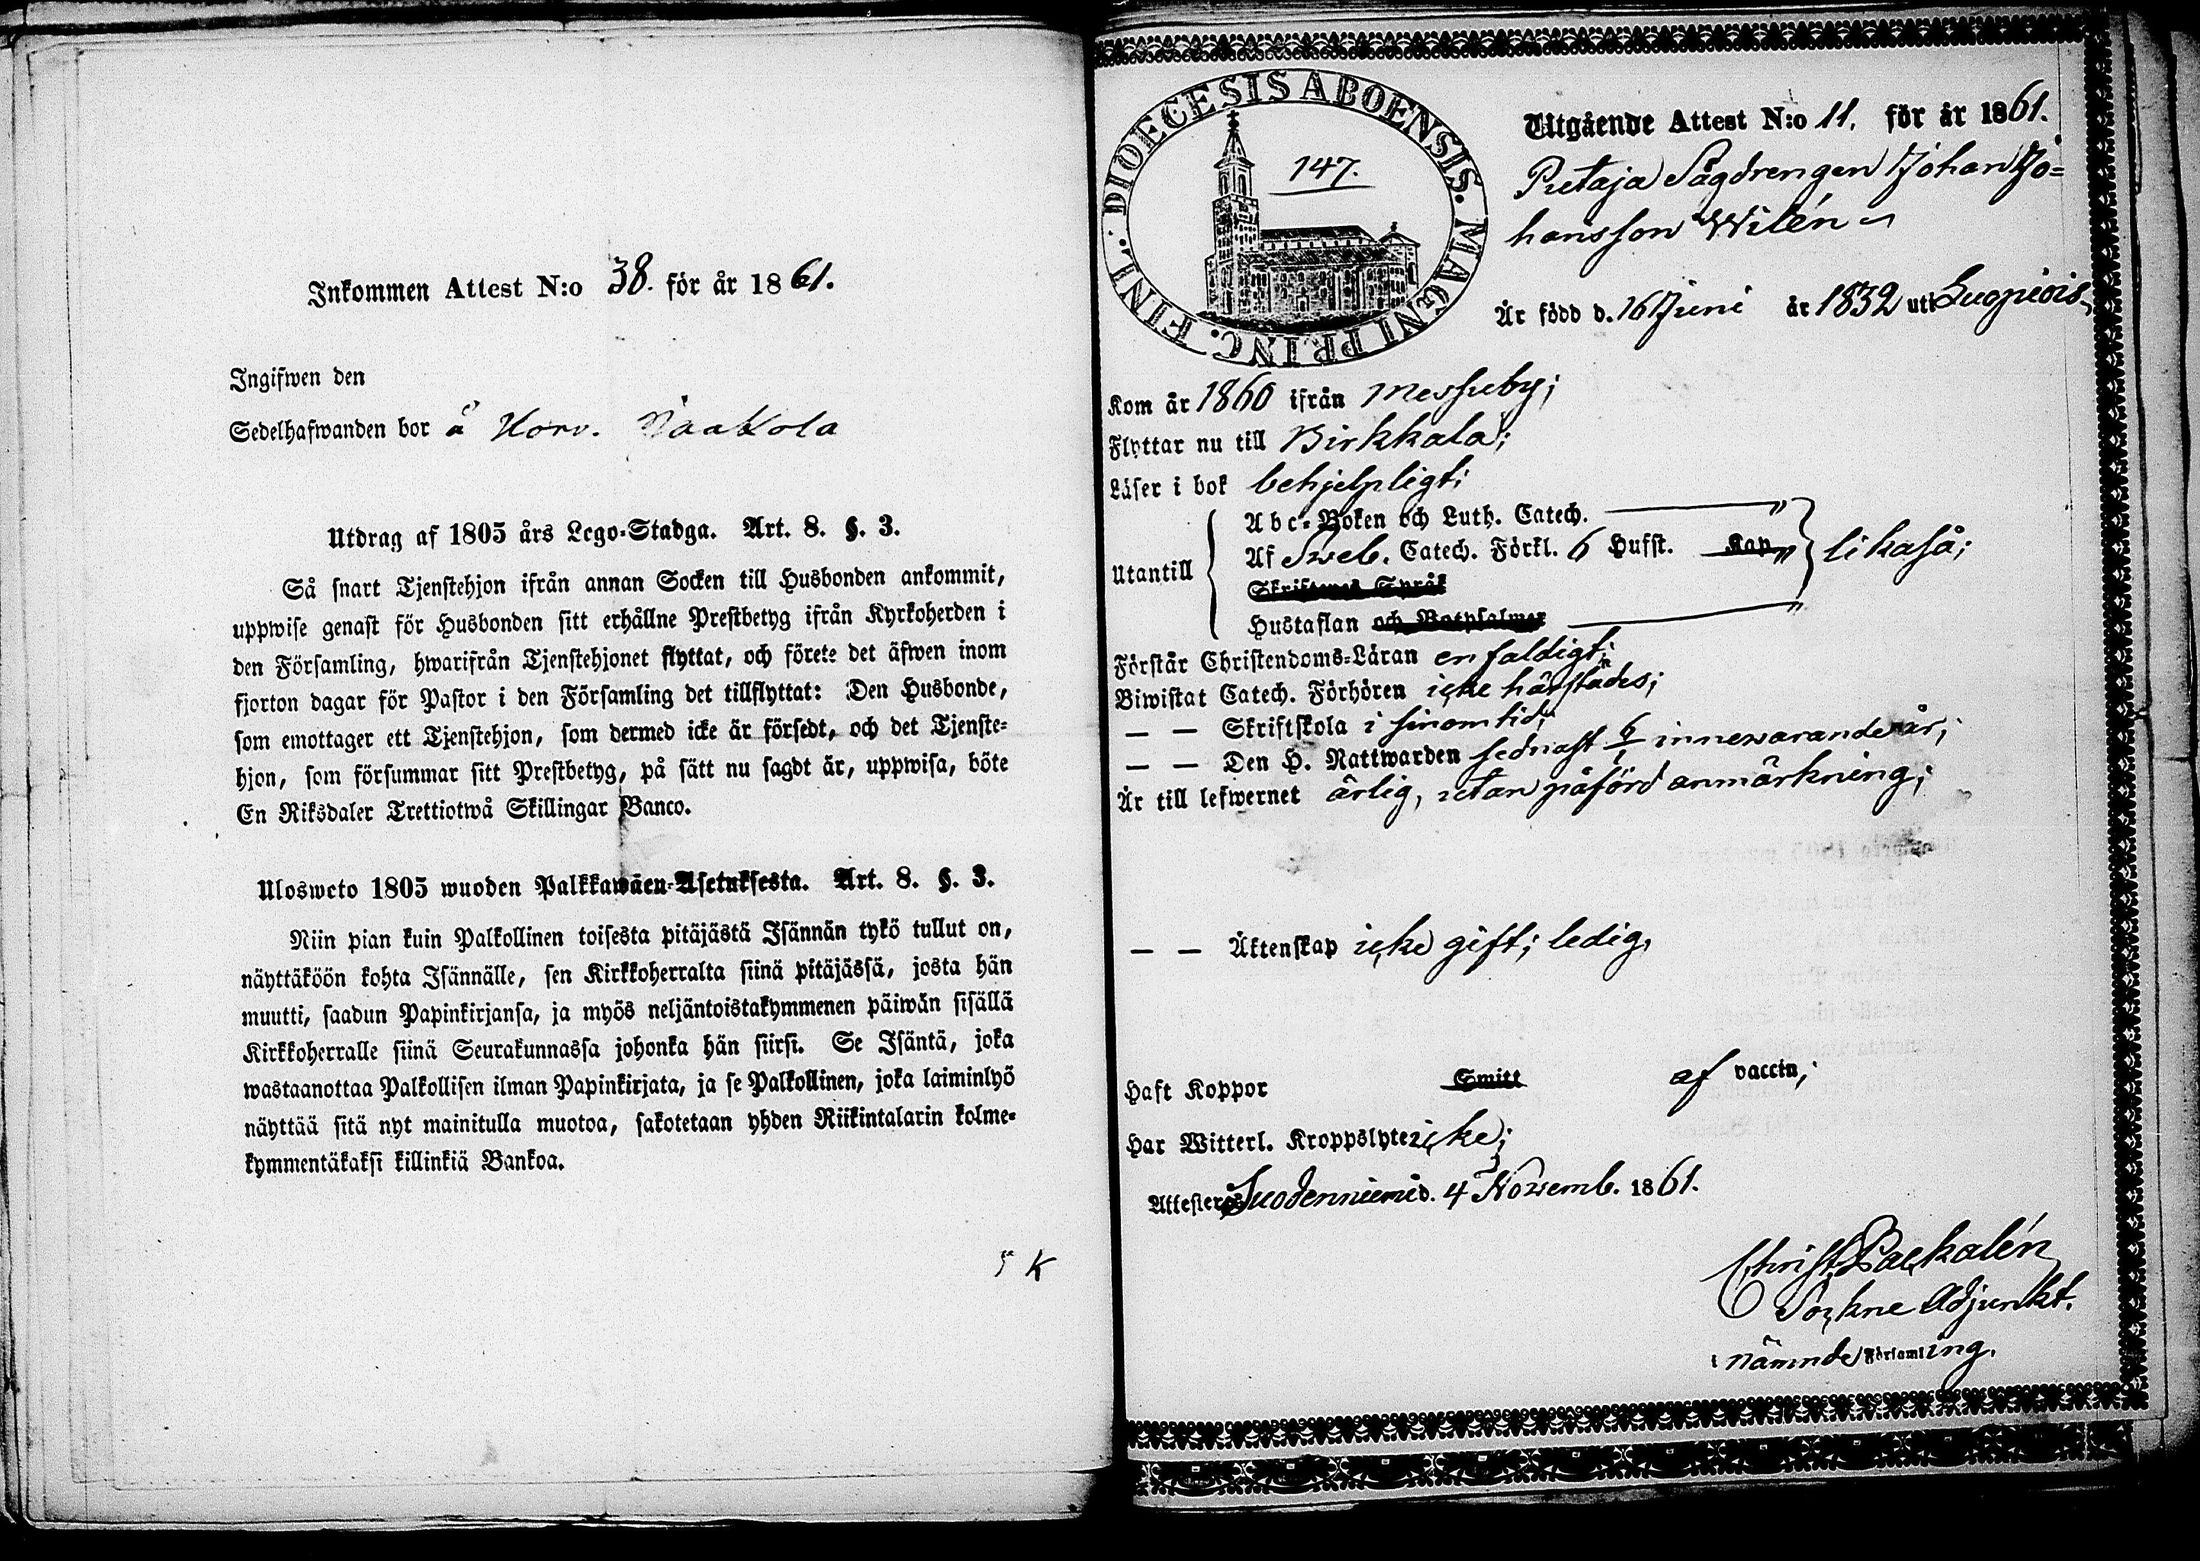 Inkommen Attest N:o 38. för år 1861.
Ingifwen den
Sedelhafwanden bor å
Utdrag af 1805 års Lego-Stadga. Art. 8. §. 3.
Så snart Tjenstehjon ifrån annan Socken till Husbonden ankommit,
uppwise genast för Husbonden sitt erhållne Prestbetyg ifrån Kyrkoherden i
den Församling, hwarifrån Tjenstehjonet flyttat, och förete det äfwen inom
fjorton dagar för Pastor i den Församling det tillflyttat: Den Husbonde,
som emottager ett Tjenstehjon, som dermed icke är försedt, och det Tjenste-
hjon, som försummar sitt Prestbetyg, på sätt nu sagdt är, uppwisa, böte
En Riksdaler Trettiotwå Skillingar Banco.
Ulosweto 1805 wuoden Palkkawäen-Asetuksesta. Art. 8. §. 3.
Niin pian kuin Palkollinen toisesta pitäjästä Isännän tykö tullut on,
näyttäköön kohta Isännälle, sen Kirkkoherralta siinä pitäjässä, josta hän
muutti, saadun Papinkirjansa, ja myös neljäntoistakymmenen päiwän sisällä
Kirkkoherralle siinä Seurakunnassa johonka hän siirsi. Se Isäntä, joka
wastaanottaa Palkollisen ilman Papinkirjata, ja se Palkollinen, joka laiminlyö
näyttää sitä nyt mainitulla muotoa, sakotetaan yhden Riikintalarin kolme-
kymmentäkaksi killinkiä Bankoa.
K
DIOECESIS ABOENSIS. MAGNI PRINC. FINL.
147.
Utgående Attest N:o 11. för år 1861.
Sågdrengen Johan Jo=
hansson Wilén
Är född d. 16 Juni år 1832 uti Luopiois
Kom år 1860 ifrån Messuby;
Flyttar nu till Birkkala;
Läser i bok behjelpligt;
Utantill
Abc-Boken och Luth. Catech. "
Af Sweb. Catech. Förkl. 6 Hufst. Kap " likaså;
Skriftenes Språk
Hustaflan och Botpsalmer "
Förstår Christendoms-Läran enfaldigt;
Biwistat Catech. Förhören icke härstädes;
— — Skriftskola i sinom tid;
— — Den H. Nattwarden sednast innewarande år;
Är till lefwernet ärlig, utan påförd anmärkning;
— — Äktenskap icke gift; ledig,
Haft Koppor Smitt af vaccin;
Har Witterl. Kroppslyte icke;
Attesteras Suodenniemi d. 4 Novemb. 1861.
Christ. Packalén
Sockne Adjunkt.
i nämnde Församling.